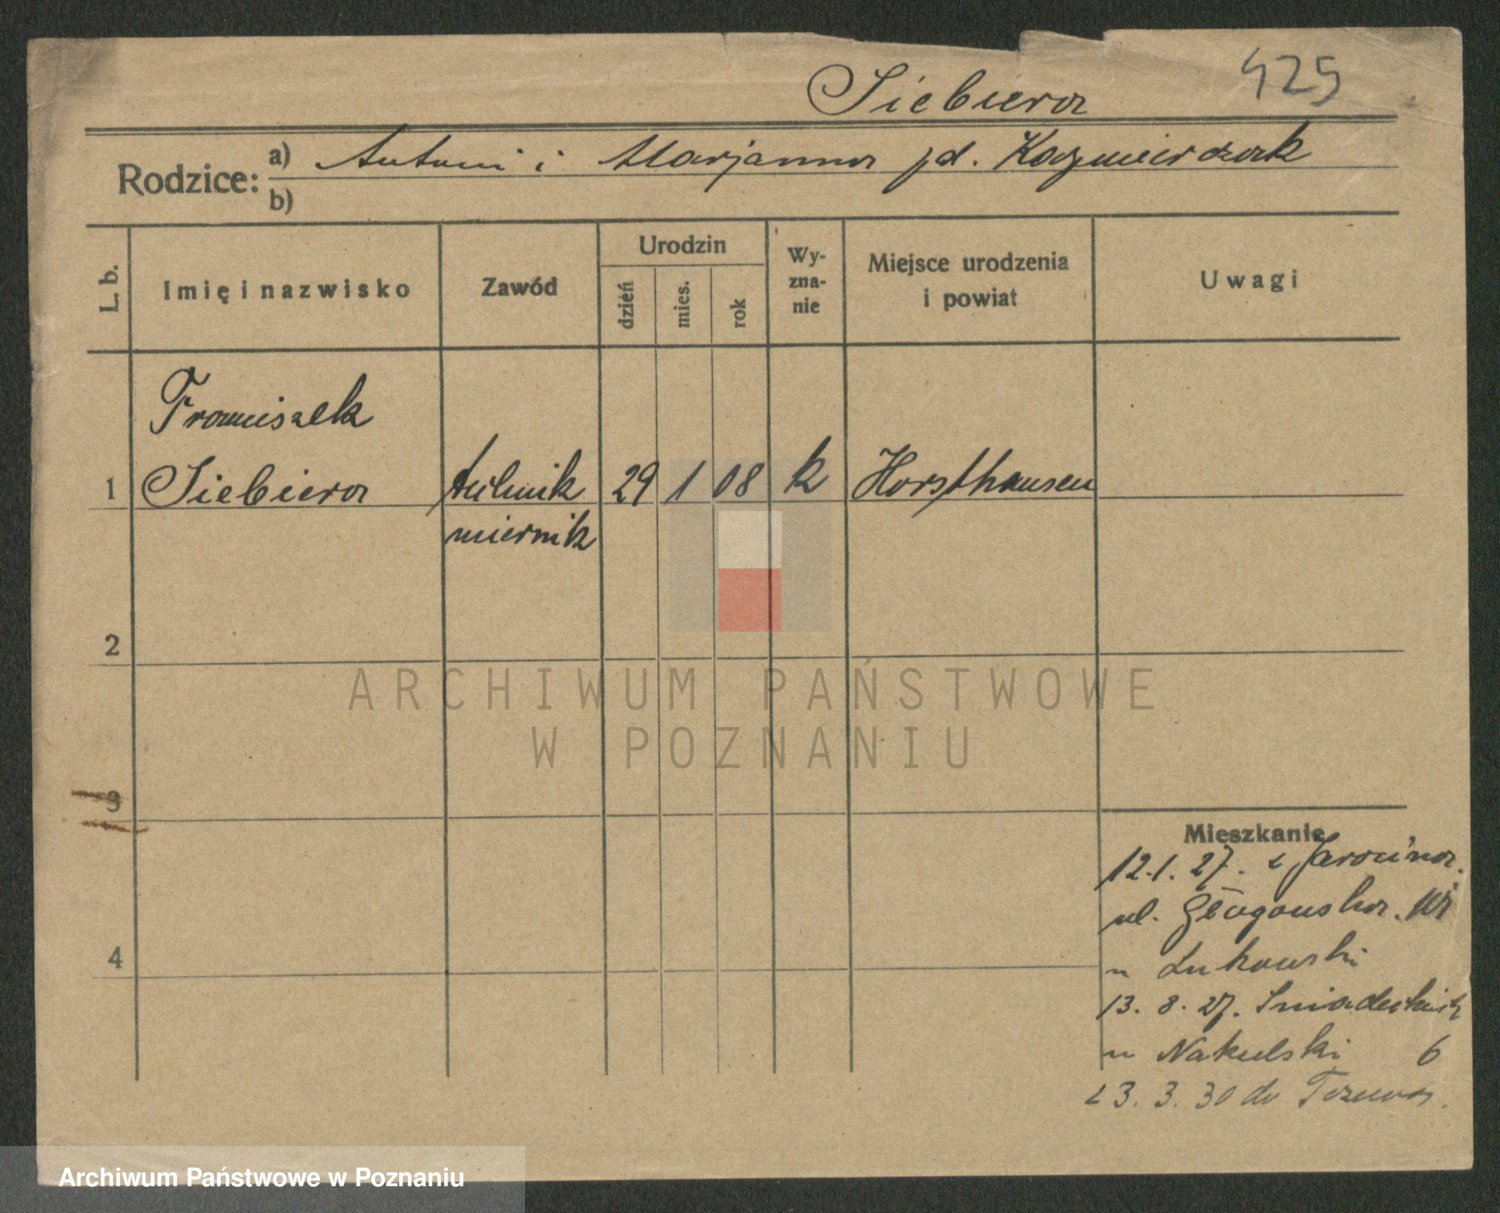 Siebiera 425
Rodzice: a) Antoni i Marjanna pd. Kaźmierczak
b)
L. b. Imię i nazwisko Zawód Urodzin dzień mies. rok Wyznanie Miejsce urodzenia i powiat Uwagi
Franciszek
1 Siebiera technik 29 1 08 k Horsthausen
miernik
2
ARCHIWUM PAŃSTWOWE
W POZNANIU
3
Mieszkanie
12.1.27. z Jarocina.
ul. Głogowska.
u Lukowski
4
13. 8. 27. Śniadeckich
u Nakulski 6
23. 3. 30 do
Archiwum Państwowe w Poznaniu